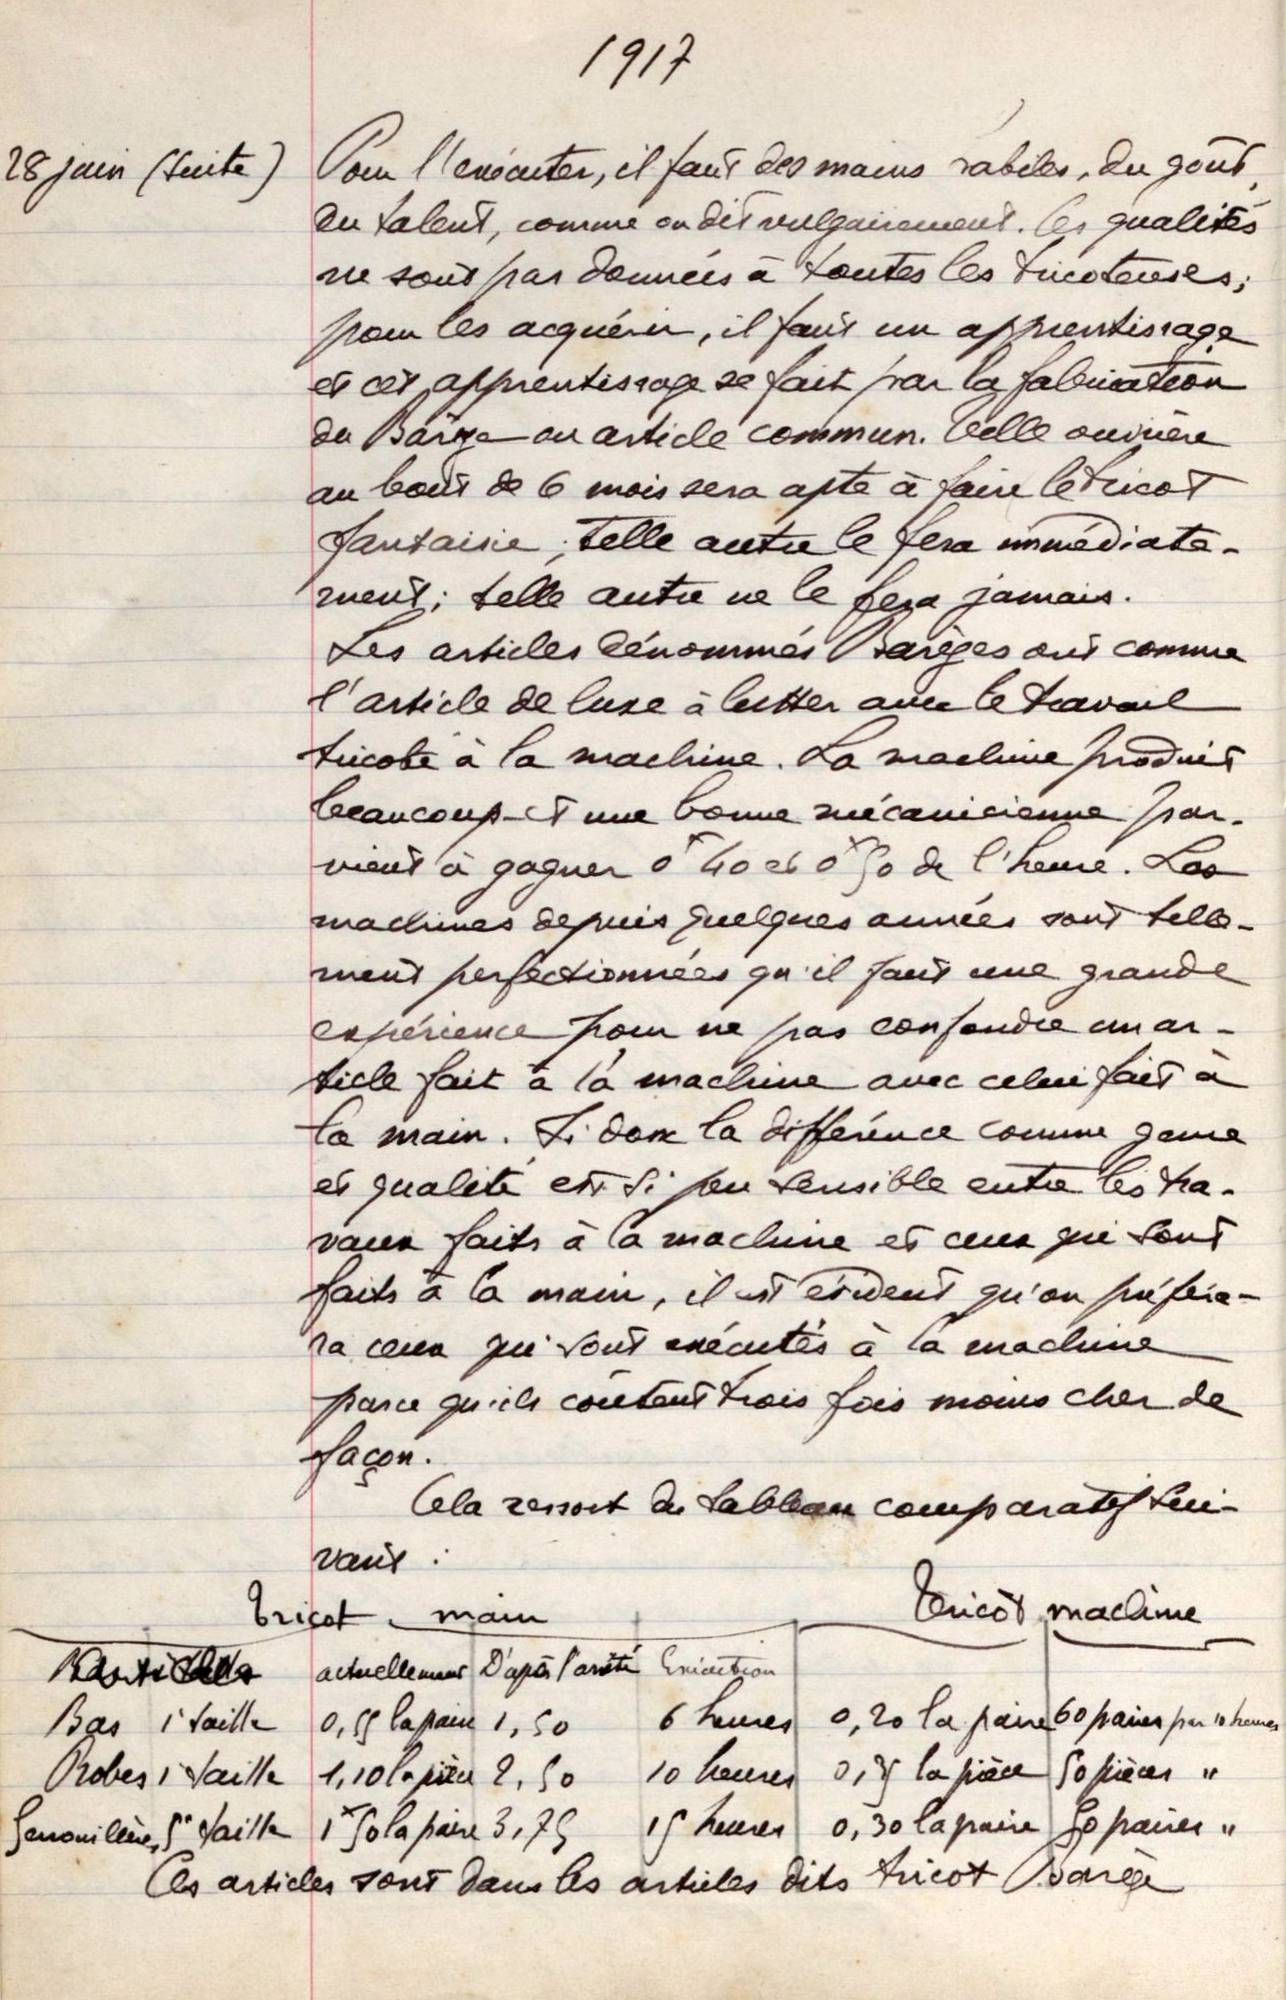 1917
28 juin (suite)
Pour l'exécuter, il faut des mains habiles, du goût,
du talent, comme on dit vulgairement. Ces qualités
ne sont pas données à toutes les tricoteuses ;
pour les acquérir, il faut un apprentissage
et cet apprentissage se fait par la fabrication
du Barège ou article commun. Telle ouvrière
au bout de 6 mois sera apte à faire le tricot
fantaisie ; telle autre le fera immédiate-
ment ; telle autre ne le fera jamais.
Les articles dénommés Barèges ont comme
l'article de luxe à lutter avec le travail
tricoté à la machine. La machine produit
beaucoup et une bonne mécanicienne par-
vient à gagner 0f 40 et 0f 50 de l'heure. Les
machines depuis quelques années sont telle-
ment perfectionnées qu'il faut une grande
expérience pour ne pas confondre un ar-
ticle fait à la machine avec celui fait à
la main. Si donc la différence comme genre
et qualité est si peu sensible entre les tra-
vaux faits à la machine et ceux qui sont
faits à la main, il est évident qu'on préfére-
ra ceux qui sont exécutés à la machine
parce qu'ils coûtent trois fois moins cher de
façon.
Cela ressort du tableau comparatif sui-
vant :
Tricot main Tricot machine
actuellement D'après l'arrêté Exécution
Bas 1e taille 0,55 la paire 1,50 6 heures 0,20 la paire 60 paires par 10 heures
Robes 1e taille 1,10 la pièce 2,50 10 heures 0,25 la pièce 50 pièces "
Genouillères 5e taille 1f 50 la paire 3,75 15 heures 0,30 la paire 50 paires "
Ces articles sont dans les articles dits tricot Barège